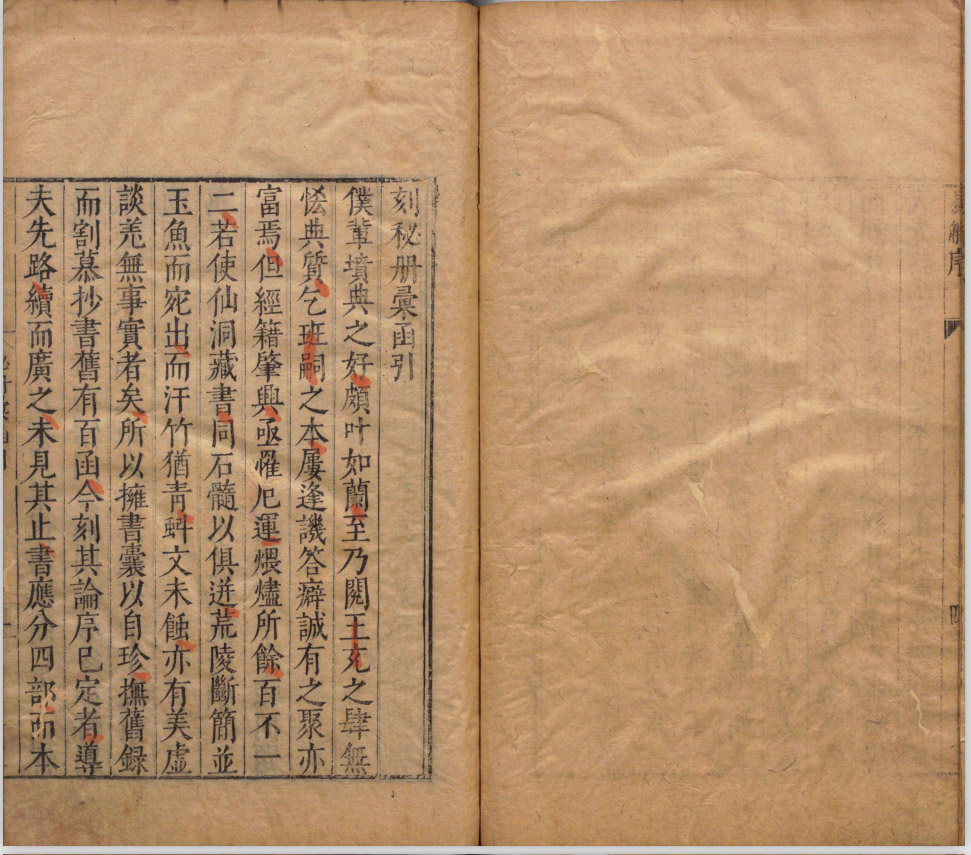 序
四
刻秘册彙函引
僕輩墳典之好頗叶如蘭至乃閱王充之肆無
恡典質乞班嗣之本屢逢譏答癖誠有之聚亦
富焉但經籍肇興亟罹厄運煨燼所餘百不一
二若使仙洞藏書同石髓以俱迸荒陵斷簡並
玉魚而宛出而汗竹猶青蚪文未蝕亦有美虛
談羌無事實者矣所以擁書囊以自珍撫舊録
而割慕抄書舊有百函今刻其論序已定者導
夫先路續而廣之未見其止書應分四部而本